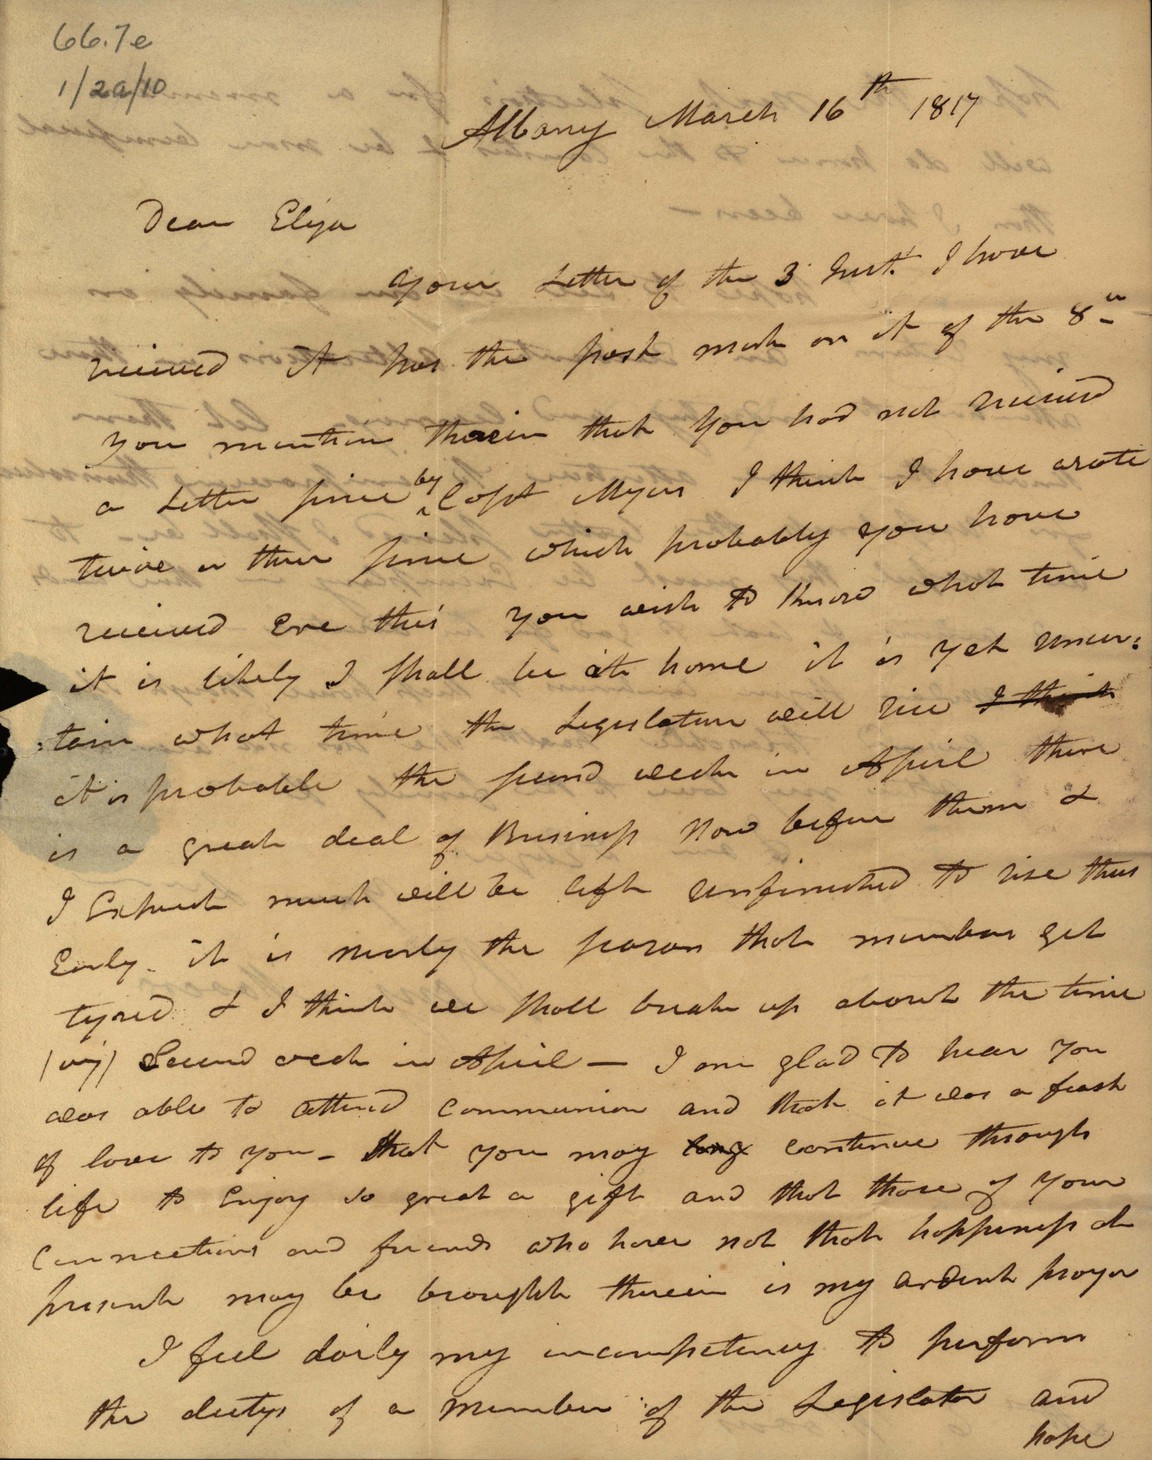 66.7e
1/2a/10
Albany March 16th 1817
Dear Eliza
Your Letter of the 3 Inst. I have
received It has the post mark on it of the 8th
you mention therein that you had not received
a Letter since by Capt Myers I think I have wrote
twice or three since which probably you have
received Ere this you wish to know what time
it is likely I shall be at home it is yet uncer:
:tain what time the Legislature will rise I think
it is probable the second week in April there
is a great deal of Business now before them &
I Expect much will be left unfinished to rise thus
Early. it is nearly the season that members get
tyred & I think we shall break up about the time
(viz) Second week in April — I am glad to hear you
was able to attend communion and that it was a feast
of love to you - that you may long continue through
life to Enjoy so great a gift and that those of your
Connections and friends who have not that happiness at
present may be brought therein is my ardent prayer
I feel daily my incompetency to perform
the dutys of a member of the Legislator and
hope